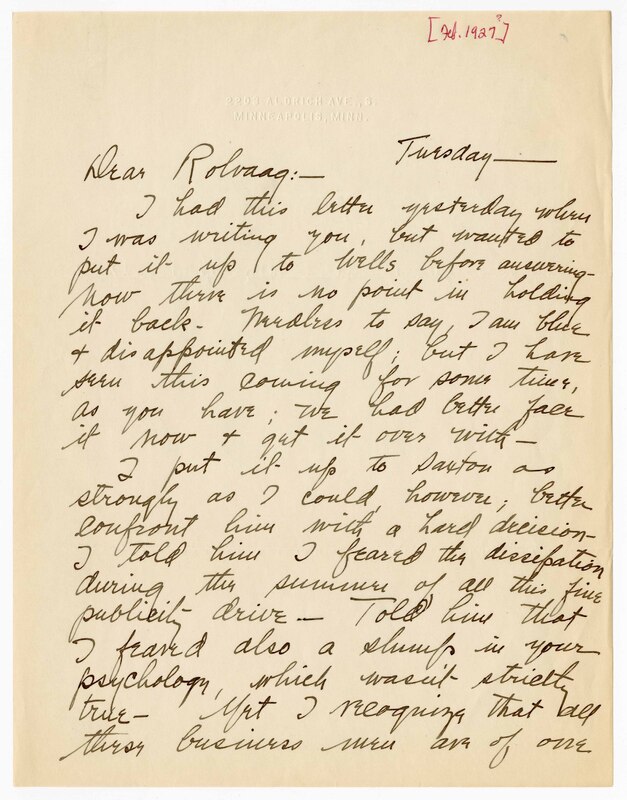 [Feb. 1927?]
2203 ALDRICH AVE., S.
MINNEAPOLIS, MINN.
Tuesday—
Dear Rolvaag:—
I had this letter yesterday when
I was writing you, but wanted to
put it up to Wells before answering—
Now there is no point in holding
it back. Needless to say, I am blue
& disappointed myself; but I have
seen this coming for some time,
as you have; we had better face
it now & get it over with—
I put it up to Saxton as
strongly as I could, however; better
confront him with a hard decision—
I told him I feared the dissipation
during the summer of all this fine
publicity drive — Told him that
I feared also a slump in your
psychology, which wasn't strictly
true— Yet I recognize that all
these business men are of one